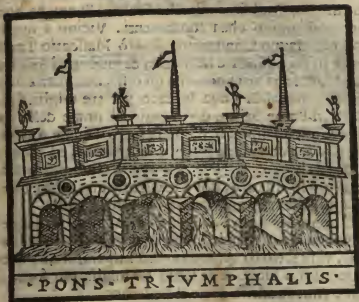 ·PONS·TRIVMPHALIS·